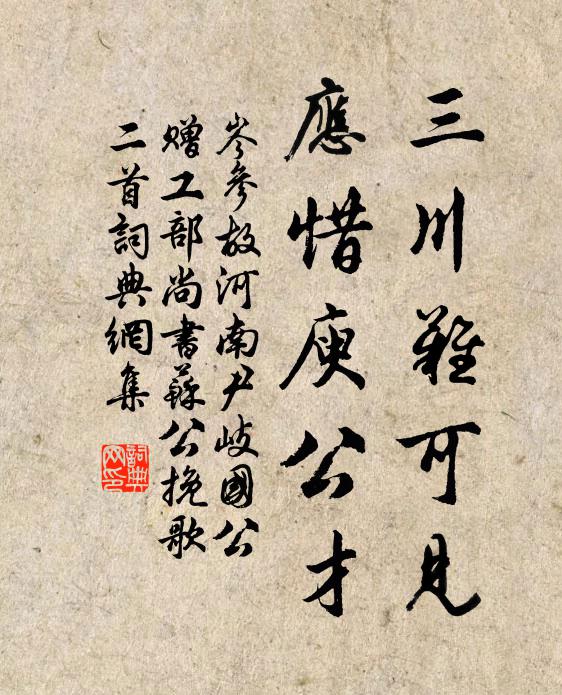 三川難可見
應惜庾公才
岑參故河南尹岐國公
贈工部尚書蘇公挽歌
二首詞典網集
詞典
网印